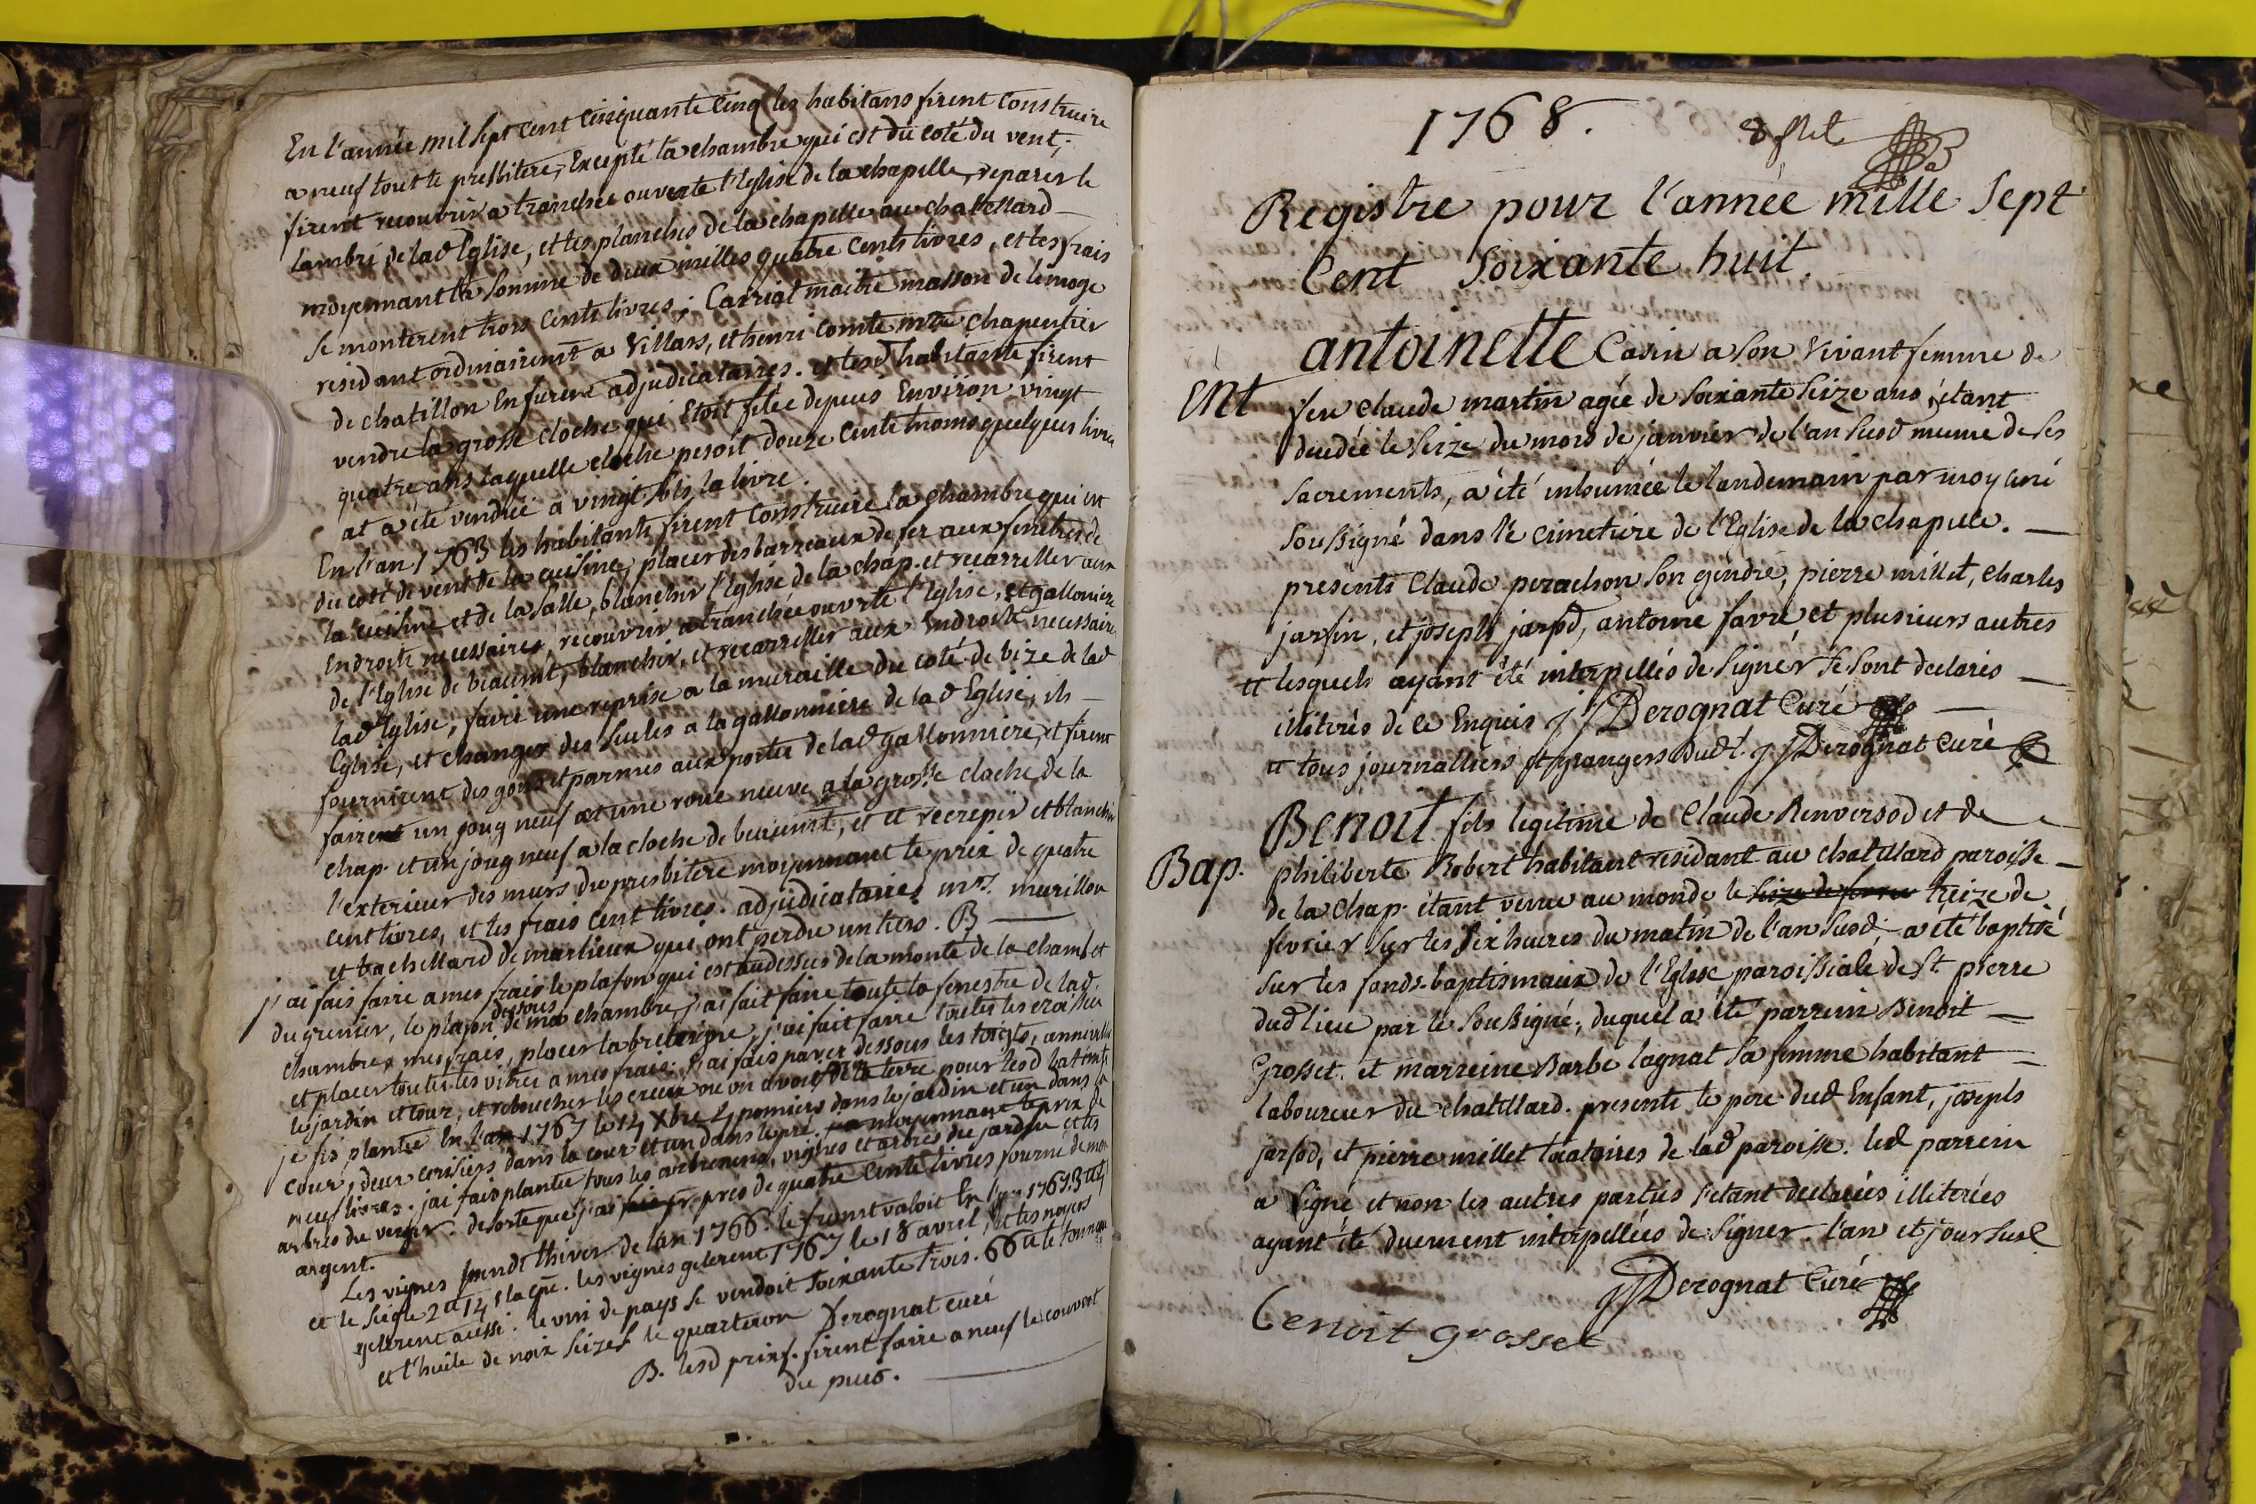 En l'année mil sept cent cinquante cinq les habitans firent construire
a neuf tout le presbitere, Excepté la chambre qui est du coté du vent,
firent recouvrir a tranchée ouverte l'Eglise de la chapelle, reparer le
lambri de lad Eglise, et les planches de la chapelle au chatellard
moyennant la somme de deux milles quatre cents livres, et les frais
se monterent trois cents livres; Carriat maitre masson de limoge
residant ordinairemt a Villars, et henri comte mtre chapentier
de chatillon En furent adjudicataires. et lesd habitants firent
vendre la grosse cloche qui Etoit felée depuis Environ vingt
quatre ans laquelle cloche pesoit douze cents moins quelques livres
at a été vendue a vingt sols la livre.
En l'an 1763 les habitants firent construire la chambre qui est
du coté de vent de la cuisine, placer des barreaux de fer aux fenetres de
la cuisine et de la salle, blanchir l'Eglise de la chap. et recarreller aux
Endroits necessaires, recouvrir a tranchée ouverte l'Eglise, et gallonniere
de l'Eglise de beaumt, blanchir, et recarreller aux Endroits necessaires
lad Eglise, faire une reprise a la muraille du coté de bize de lad
Eglise, et changer des seules a la gallonniere de lad Eglise, ils
fournirent des gons et parmes aux portes de lad gallonniere, et firent
faire un joug neuf et une roue neuve a la grosse cloche de la
chap. et un joug neuf a la cloche de beaumt, et recrepir et blanchir
l'exterieur des murs du presbitere moyennant le prix de quatre
cent livres, et les frais cent livres. adjudicataires mrs. murillon
et bachellard de marlieux qui ont perdu un tiers. B
j'ai fais faire a mes frais le plafon qui est audessus de la monté de la chamb. et
du grenier, le plafon dessous de ma chambre, j'ai fait faire toute la fenestre de lad
chambre a mes frais, placer la bretaigne, j'ai fait faire toutes les croisées
et placer toutes les vitres a mes frais, j'ai fais paver dessous les toicts,
le jardin et cour, et reboucher les creux ou on avoit de la terre pour lesd batimts
je fis planter En l'an 1767 le 14 Xbre 4 pomiers dans le jardin et un dans la
cour, deux cerisiers dans la cour et un dans le pré moyennant le prix de
neuf livres. j'ai fais planter tous les arbres nains, vignes et arbres du jardin et les
arbres du verger. desorte que j'ai pres de quatre cents livres fourni de mon
argent.
Les vignes l'hiver de l'an 1766. le fromt valoit En l'an 1767
et le seigle 2tt 14s la cpe. les vignes gelerent 1767 le 18 avril, et les noyers
gelerent aussi. le vin de pays se vendoit soixante trois. 66tt le tonneau
et l'huile de noix seize s le quarteron Derognat curé
B. lesd prixf. firent faire a neuf le couvert
du puis.
1768.
Registre pour l'année mille sept
Cent soixante huit.
antoinette Cavin a son vivant femme de
Ent feu claude martin agée de soixante seize ans étant
decedée le seize du mois de janvier de l'an susd munie de ses
sacrements, a été inhumée le landemain par moy curé
soussigné dans le cimetiere de l'Eglise de la chapelle.
presents Claude perachon son gendre, pierre millet, charles
jarsin, et joseph jarsod, antoine favre et plusieurs autres
et lesquels ayant été interpellés de signer se sont declarés
illiterés de ce Enquis j j Derognat Curé
et tous journalliers et grangers dud l. j j Derognat curé
Benoit fils legitime de Claude Renversod et de
Bap. philiberte Robert habitant residant au chatellard paroisse
de la chap. étant venu au monde le treize de
fevrier sur les six heures du matin de l'an susd, a été baptisé
sur les fonds-baptismaux de l'Eglise paroissiale de St. pierre
dud lieu par le soussigné, duquel a été parrein Benoit
Grosset, et marreine Barbe lagnat sa femme habitant
laboureur du chatellard. presents le pere dud Enfant, joseph
jarsod, et pierre millet locataires de lad paroisse. led parrein
a signé et non les autres parties s'etant declarées illiterées
ayant été duement interpellées de signer. l'an et jour susd
j j Derognat Curé
Benoit Grosset